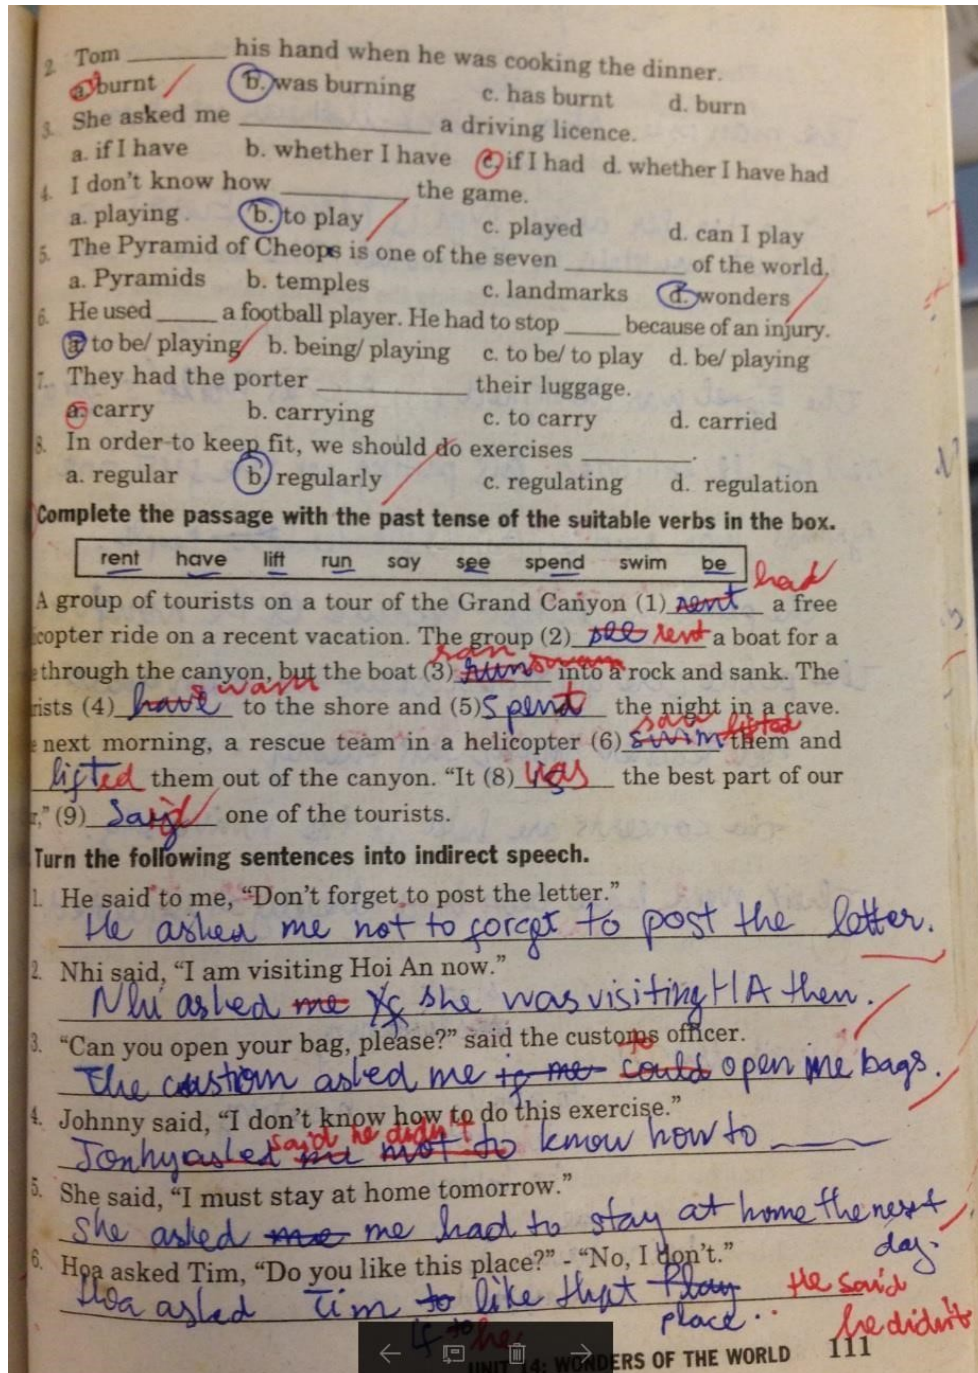 2. Tom ________ his hand when he was cooking the dinner.
a. burnt b. was burning c. has burnt d. burn
3. She asked me ________ a driving licence.
a. if I have b. whether I have c. if I had d. whether I have had
4. I don't know how ________ the game.
a. playing b. to play c. played d. can I play
5. The Pyramid of Cheops is one of the seven ________ of the world.
a. Pyramids b. temples c. landmarks d. wonders
6. He used ____ a football player. He had to stop ____ because of an injury.
a. to be/ playing b. being/ playing c. to be/ to play d. be/ playing
7. They had the porter ________ their luggage.
a. carry b. carrying c. to carry d. carried
8. In order to keep fit, we should do exercises ________.
a. regular b. regularly c. regulating d. regulation
Complete the passage with the past tense of the suitable verbs in the box.
rent have lift run say see spend swim be
had
A group of tourists on a tour of the Grand Canyon (1) rent a free
copter ride on a recent vacation. The group (2) see rent a boat for a
ran swam
through the canyon, but the boat (3) run into a rock and sank. The
swam
rists (4) have to the shore and (5) spent the night in a cave.
saw lifted
next morning, a rescue team in a helicopter (6) swim them and
lifted them out of the canyon. "It (8) was the best part of our
," (9) Said one of the tourists.
Turn the following sentences into indirect speech.
1. He said to me, "Don't forget to post the letter."
He asked me not to forget to post the letter.
2. Nhi said, "I am visiting Hoi An now."
Nhi asked me if she was visiting HA then.
3. "Can you open your bag, please?" said the customs officer.
to
The custom asked me to me could open me bags.
4. Johnny said, "I don't know how to do this exercise."
said he didn't
Jonhy asked me not to know how to ____
5. She said, "I must stay at home tomorrow."
She asked me me had to stay at home the next
day.
6. Hoa asked Tim, "Do you like this place?" - "No, I don't."
Hoa asked Tim to like that Play He said
if to he place.. he didn't
UNIT 14: WONDERS OF THE WORLD 111